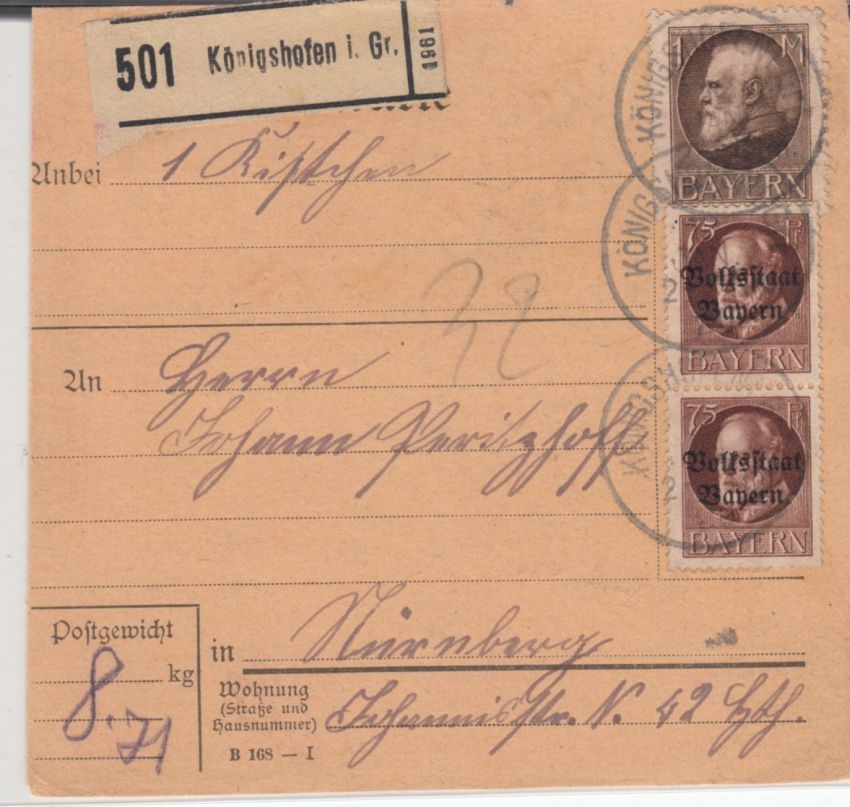 501 Königshofen i. Gr. 1961
1 M
BAYERN
Anbei 1 Kistchen
KÖNIGSH
75 Pf
Volksstaat
Bayern
BAYERN
An Herrn
Johann
75 Pf
Volksstaat
Bayern
BAYERN
Postgewicht
8.71 kg
in Nürnberg
Wohnung
(Straße und
Hausnummer)
Johannisstr. N. 42 Hth.
B 168 — I